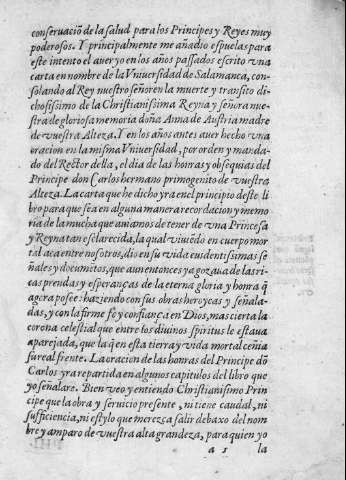 conseruaciõ de la salud para los Principes y Reyes muy
poderosos. Y principalmente me añadio espuelas para
este intento el auer yo en los años passados escrito vna
carta en nombre de la Vniuersidad de Salamanca, con-
solando al Rey nuestro señor en la muerte y transito di-
chosissimo de la Christianissima Reyna y señora nues-
tra de gloriosa memoria doña Anna de Austria madre
de vuestra Alteza. Y en los años antes auer hecho vna
oracion en la misma Vniuersidad, por orden y manda-
do del Rector della, el dia de las honras y obsequias del
Principe don Carlos hermano primogenito de vuestra
Alteza. La carta que he dicho yra en el principio deste li
bro para que sea en alguna manera recordacion y memo
ria de la mucha que auiamos de tener de vna Princesa
y Reyna tan esclarecida, la qual viuiẽdo en cuerpo mor
tal aca entre nosotros, dio en su vida euidentissimas se
ñales y documẽtos, que aun entonces ya gozaua de las ri-
cas prendas y esperanças de la eterna gloria y honra q̃
agora posee: haziendo con sus obras heroycas y señala-
das, y con la firme fe y confiança en Dios, mas cierta la
corona celestial que entre los diuinos spiritus le estaua
aparejada, que la q̃ en esta tierra y vida mortal ceñia
su real frente. La oracion de las honras del Principe dõ
Carlos yra repartida en algunos capitulos del libro que
yo señalare. Bien veo y entiendo Christianisimo Prin
cipe que la obra y seruicio presente, ni tiene caudal, ni
sufficiencia, ni estylo que merezca salir debaxo del nom
bre y amparo de vuestra alta grandeza, para quien yo
a 1 la